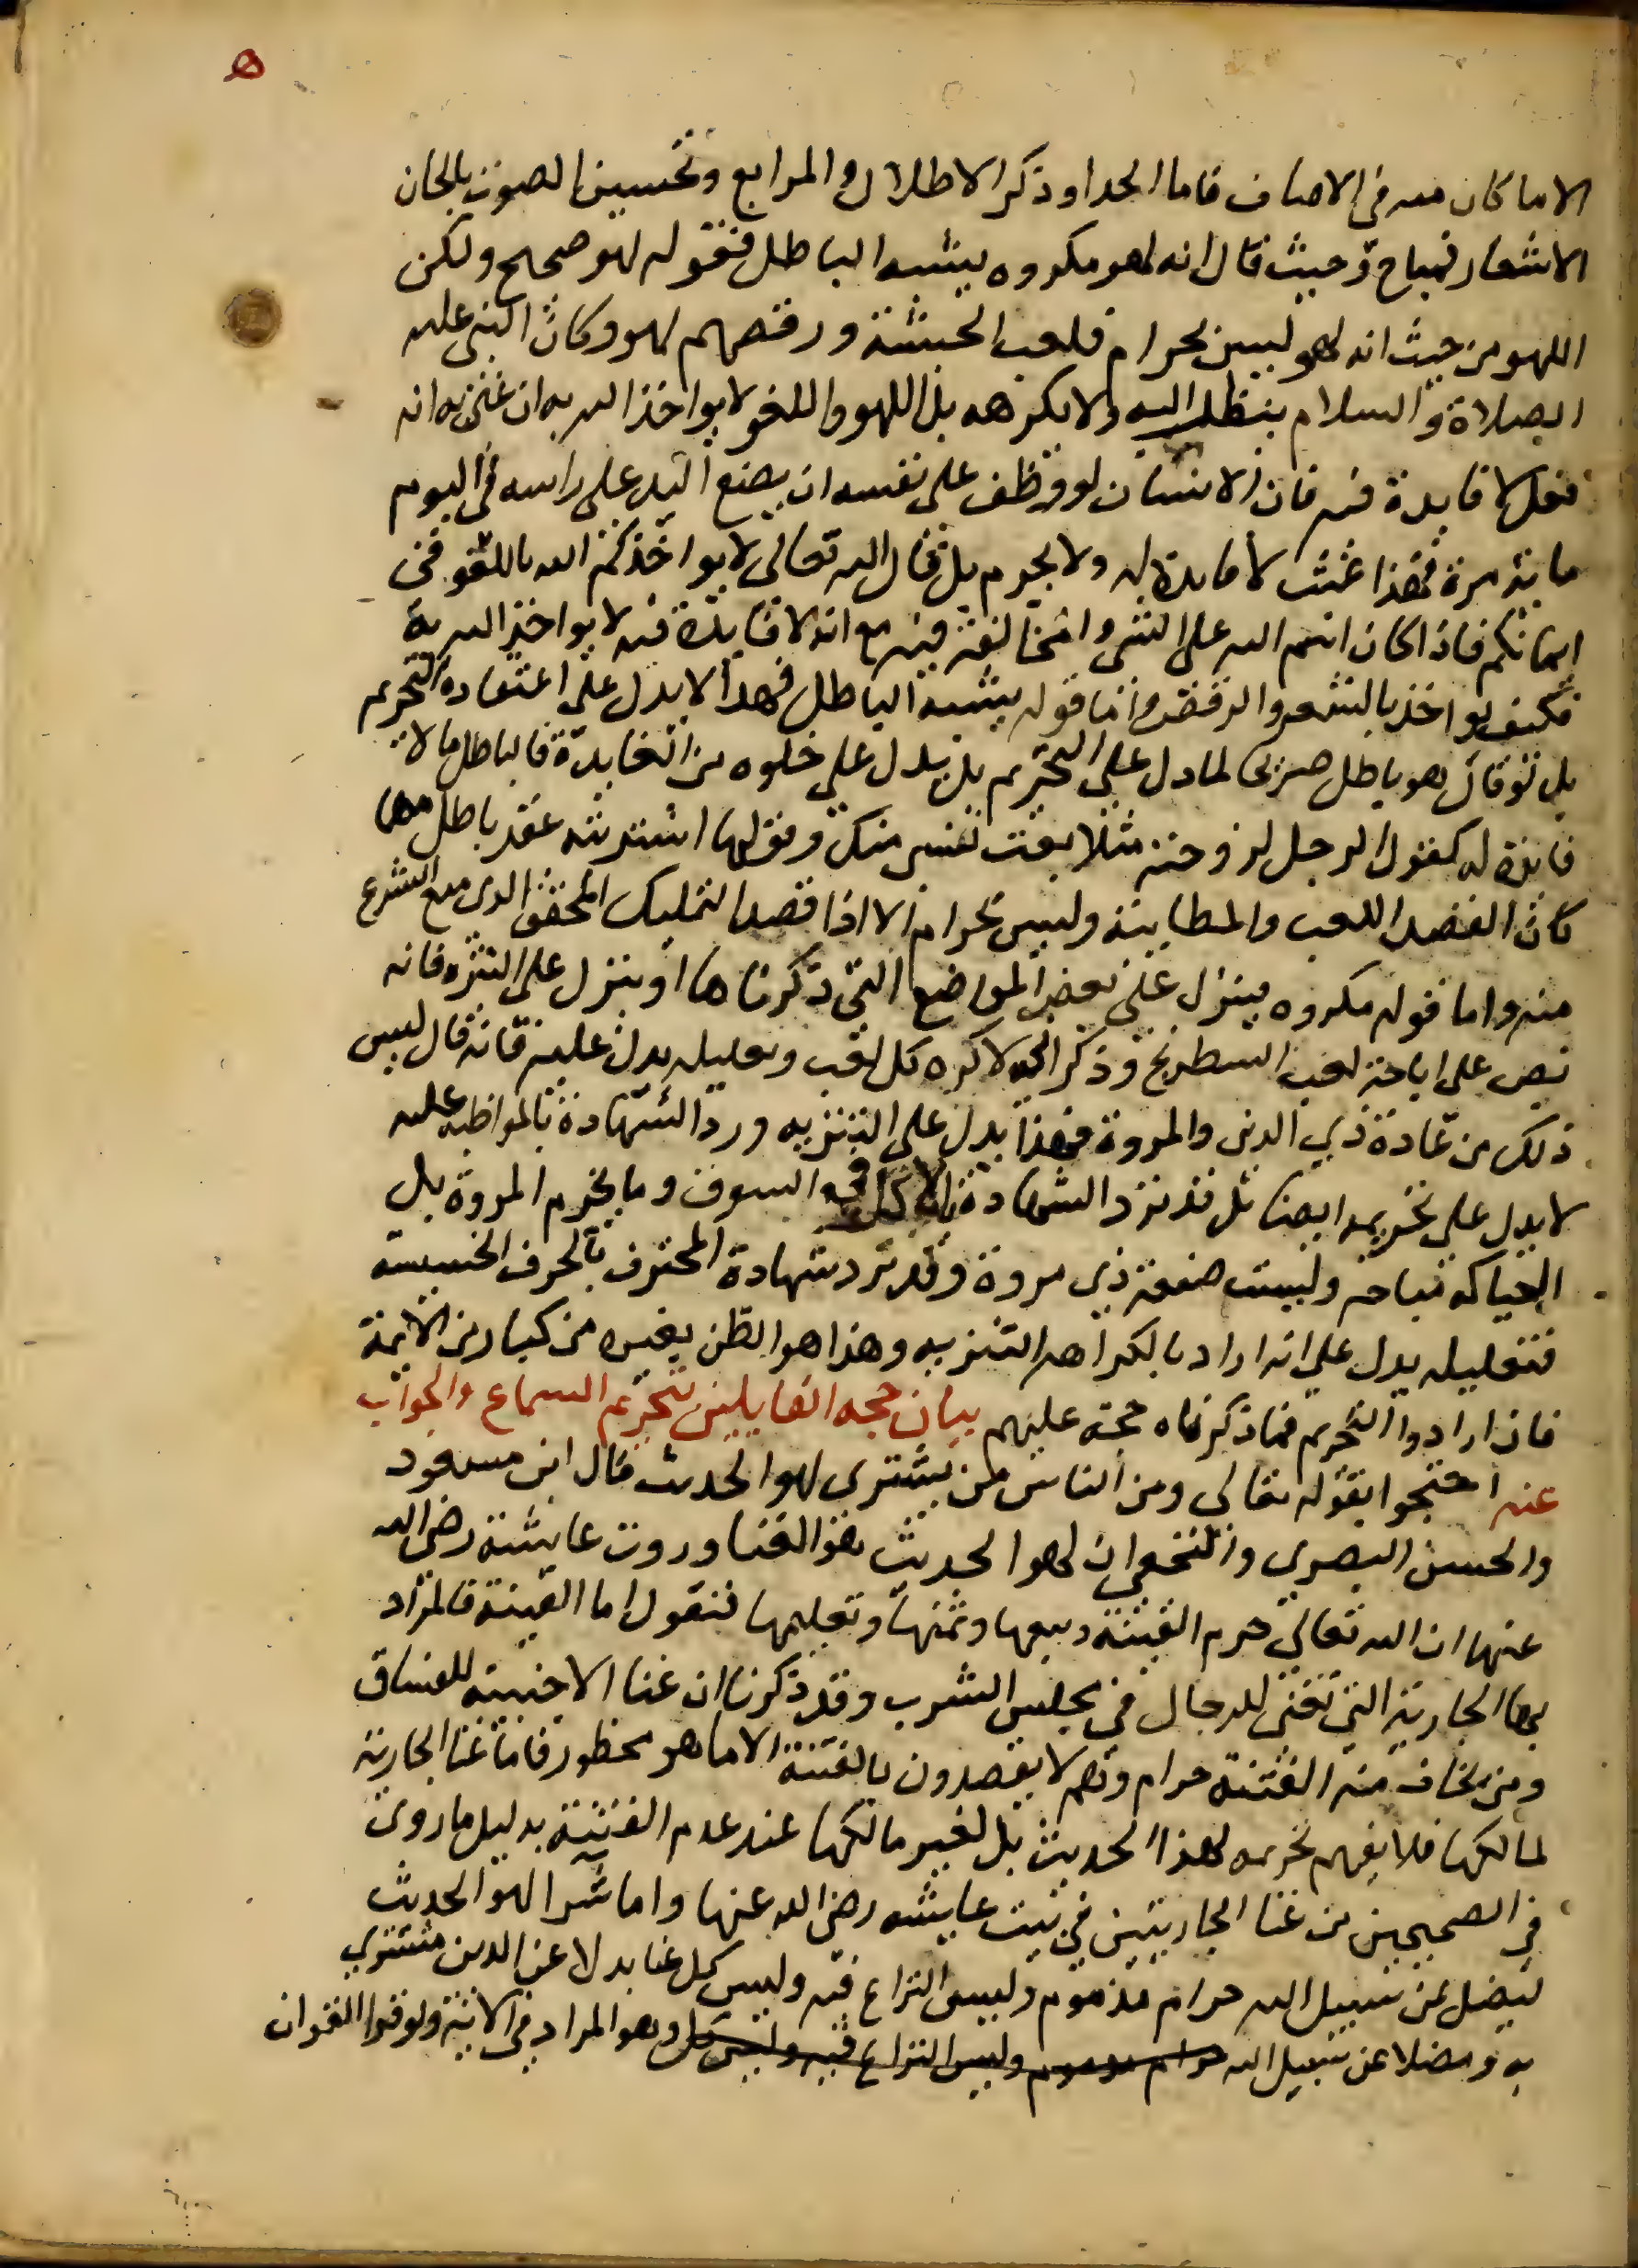 ه
الا ما كان منه في الاصناف فاما الحداو ذكر الاطلال والمرابع وتحسين الصوت بالحان
الاشعار فمباح وحيث قال انه لهو مكروه يشبه الباطل فقوله لهو صحيح ولكن
اللهو من حيث انه لهو ليس بحرام فلعب الحبشة ورقصهم لهو وكان النبي عليه
الصلاة والسلام ينظر اليه ولا يكرهه بل اللهو واللغو لا يواخذ الله به ان عنى به انه
فعل لا فايدة فيه فان الانسان لو وظف على نفسه ان يضع اليد على راسه في اليوم
ماية مرة فهذا عبث لا فايدة له ولا يحرم بل قال الله تعالى لا يواخذكم الله باللغو في
ايمانكم فاذا كان اسم الله على الشي والمخالفة فيه مع انه لا فايدة فيه لا يواخذ الله به
فكيف يواخذ بالشعر والرقص واما قوله يشبه الباطل فهذا لا يدل على اعتقاده التحريم
بل لو قال هو باطل صريحا لما دل على التحريم بل يدل على خلوه من الفايدة فالباطل ما لا
فايدة له كقول الرجل لزوجته مثلا بعت نفسي منك وقولها اشتريته عقد باطل مهما
كان القصد اللعب والمطايبة وليس بحرام الا اذا قصد التمليك المحقق الذي منع الشرع
منه واما قوله مكروه فينزل على بعض المواضع التي ذكرناها او ينزل على التنزه فانه
نص على اباحة لعب الشطرنج وذكر اني لاكره كل لعب وتعليله يدل عليه فانه قال ليس
ذلك من عادة ذي الدين والمروة فهذا يدل على التنزيه ورد الشهادة بالمواظبه عليه
لا يدل على تحريمه ايضا بل قد ترد الشهادة بالاكل في السوق وما يخرم المروة بل
الحياكه مباحة وليست صنعة ذي مروة وقد ترد شهادة المحترف بالحرف الخسيسة
فتعليله يدل على انه اراد بالكراهه التنزيه وهذا هو الظن بغيره من كبار من الايمة
فان ارادوا التحريم فما ذكرناه حجة عليهم بيان حجه القايلين بتحريم السماع والجواب
عنه احتجوا بقوله تعالى ومن الناس من يشتري لهو الحديث قال ابن مسعود
والحسن البصري والنخعي ان لهو الحديث هو الغنا وروت عايشة رضي الله
عنها ان الله تعالى حرم القينة وبيعها وثمنها وتعليمها فنقول اما القينة فالمراد
بها الجارية التي تغني للرجال في مجلس الشرب وقد ذكرنا ان غنا الاجنبية للفساق
ومن يخاف منه الفتنة حرام وهم لا يقصدون بالفتنة الا ما هو محظور فاما غنا الجارية
لمالكها فلا يفهم تحريمه لهذا الحديث بل لغير مالكها عند عدم الفتنة بدليل ما روي
في الصحيحين من غنا الجاريتين في بيت عايشه رضي الله عنها واما شرا لهو الحديث
ليضل عن سبيل الله حرام مذموم وليس النزاع فيه وليس كل غنا بدلا عن الدين مشتري
به ومضلا عن سبيل الله حرام مذموم وليس النزاع فيه وليس كل وهو المراد في الاية ولو قرا القران